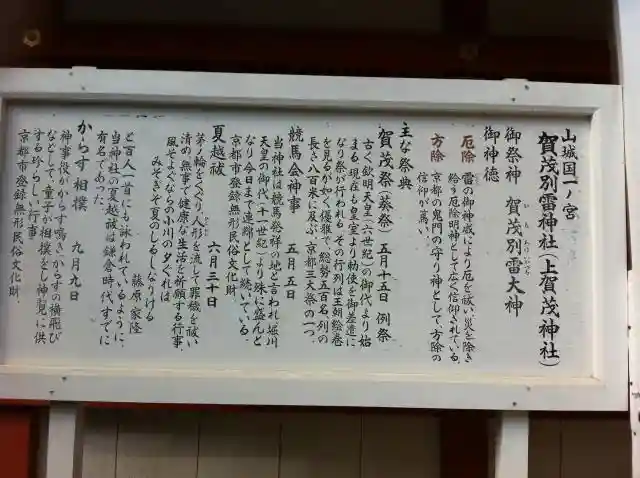 山城国一ノ宮
賀茂別雷神社(上賀茂神社)
御祭神 賀茂別雷大神
御神徳
厄除 雷の御神威により厄を祓い災を除き
給う厄除明神として広く信仰されている。
方除 京都の鬼門の守り神として、方除の
信仰が篤い。
主な祭典
賀茂祭(葵祭) 五月十五日 例祭
古く欽明天皇(六世紀)の御代より始
まる。現在も皇室より勅使を御差遣に
なり祭が行われる。その行列は王朝絵巻
を見るが如く優雅で、総勢五百名、列の
長さ八百米に及ぶ。京都三大祭の一つ。
競馬会神事 五月五日
当神社は競馬発祥の地と言われ堀川
天皇の御代(十一世紀)より殊に盛んと
なり今日まで連綿として続いている。
京都市登録無形民俗文化財
夏越祓 六月三十日
茅ノ輪をくぐり人形を流して罪穢を祓い
清め無事で健康な生活を祈願する行事。
風そよぐならの小川の夕ぐれは
みそぎぞ夏のしるしなりける
藤原家隆
と百人一首にも詠われているように、
当神社の夏越祓は鎌倉時代すでに
有名であった。
からす相撲 九月九日
神事役がからす鳴き、からすの横飛び
などして、童子が相撲をし神覧に供
する珍らしい行事
京都市登録無形民俗文化財